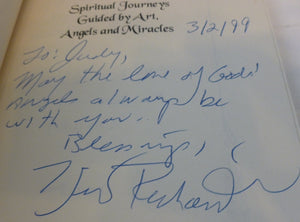 Spiritual Journeys
Guided by Art,
Angels and Miracles
3/2/99
To: Judy,
May the love of God's
Angels always be
with you..
Blessings,